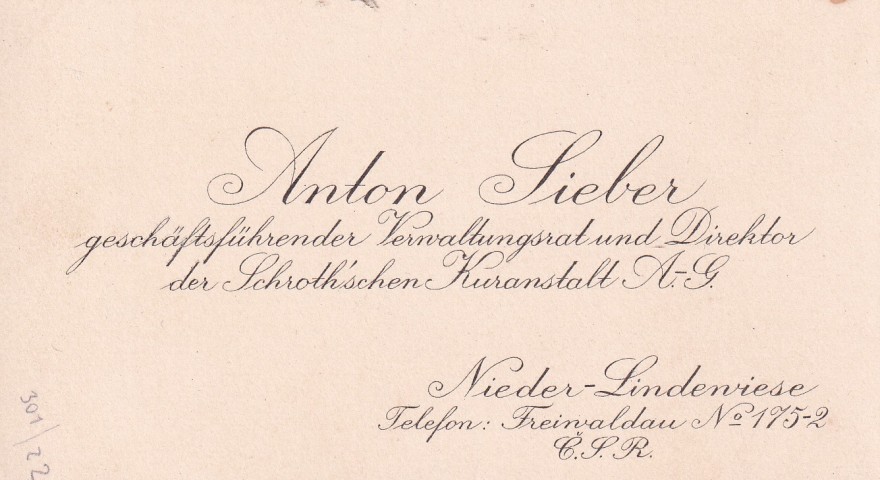 Anton Sieber
geschäftsführender Verwaltungsrat und Direktor
der Schroth'schen Kuranstalt A.-G.
Nieder-Lindewiese
Telefon: Freiwaldau No 175-2
Č.S.R.
301/22